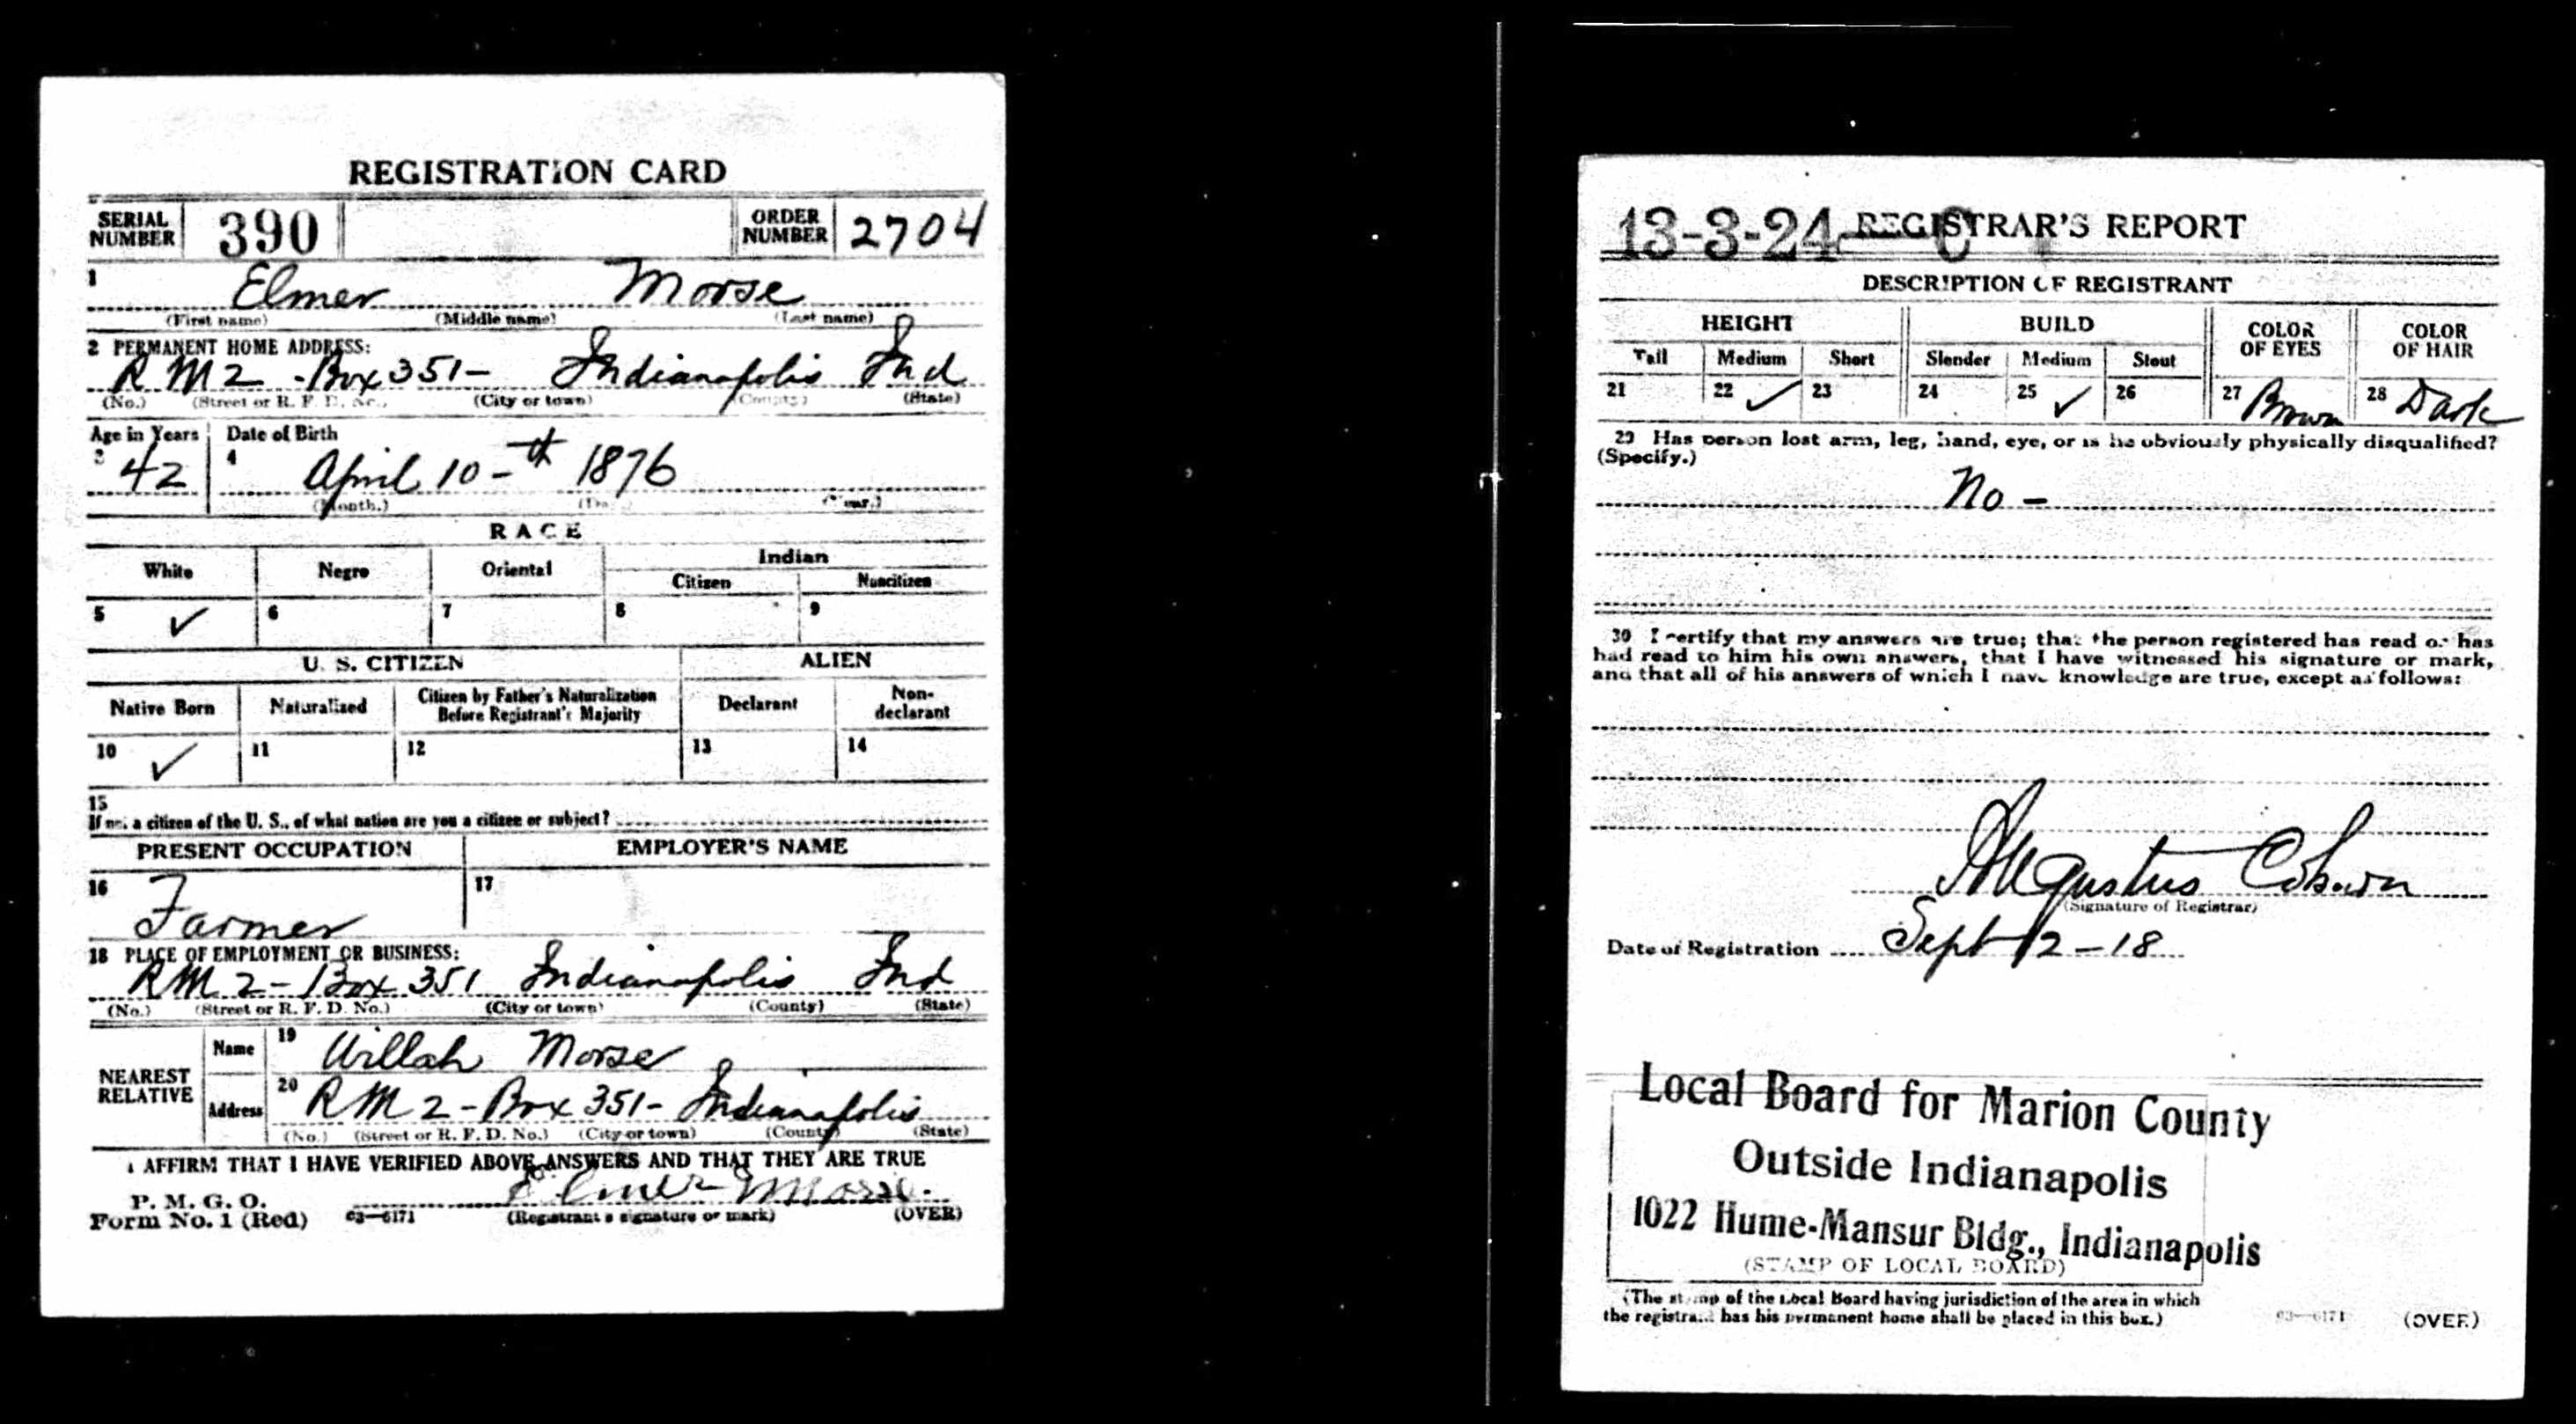 REGISTRATION CARD
SERIAL NUMBER 390 ORDER NUMBER 2704
1 Elmer Morse
(First name) (Middle name) (Last name)
2 PERMANENT HOME ADDRESS:
R M 2 - Box 351- Indianapolis Ind
(No.) (Street or R. F. D. No.) (City or town) (County) (State)
Age in Years Date of Birth
3 42 4 April 10-th 1876
(Month.) (Day.) (Year.)
RACE
White Negro Oriental Indian
Citizen Noncitizen
5 ✓ 6 7 8 9
U. S. CITIZEN ALIEN
Native Born Naturalized Citizen by Father's Naturalization Before Registrant's Majority Declarant Non-declarant
10 ✓ 11 12 13 14
15
If not a citizen of the U. S., of what nation are you a citizen or subject?
PRESENT OCCUPATION EMPLOYER'S NAME
16 Farmer 17
18 PLACE OF EMPLOYMENT OR BUSINESS:
RM 2 - Box 351 Indianapolis Ind
(No.) (Street or R. F. D. No.) (City or town) (County) (State)
NEAREST RELATIVE
Name 19 Willah Morse
Address 20 RM 2 - Box 351- Indianapolis
(No.) (Street or R. F. D. No.) (City or town) (County) (State)
I AFFIRM THAT I HAVE VERIFIED ABOVE ANSWERS AND THAT THEY ARE TRUE
P. M. G. O.
Form No. 1 (Red) 03—6171 Elmer Morse
(Registrant's signature or mark) (OVER)
13-3-24- C REGISTRAR'S REPORT
DESCRIPTION OF REGISTRANT
HEIGHT BUILD COLOR OF EYES COLOR OF HAIR
Tall Medium Short Slender Medium Stout
21 22 ✓ 23 24 25 ✓ 26 27 Brown 28 Dark
29 Has person lost arm, leg, hand, eye, or is he obviously physically disqualified?
(Specify.)
No -
30 I certify that my answers are true; that the person registered has read or has
had read to him his own answers, that I have witnessed his signature or mark,
and that all of his answers of which I have knowledge are true, except as follows:
Augustus Coburn
(Signature of Registrar)
Date of Registration Sept 12-18
Local Board for Marion County
Outside Indianapolis
1022 Hume-Mansur Bldg., Indianapolis
(STAMP OF LOCAL BOARD)
(The stamp of the Local Board having jurisdiction of the area in which
the registrant has his permanent home shall be placed in this box.)
03—6171 (OVER)